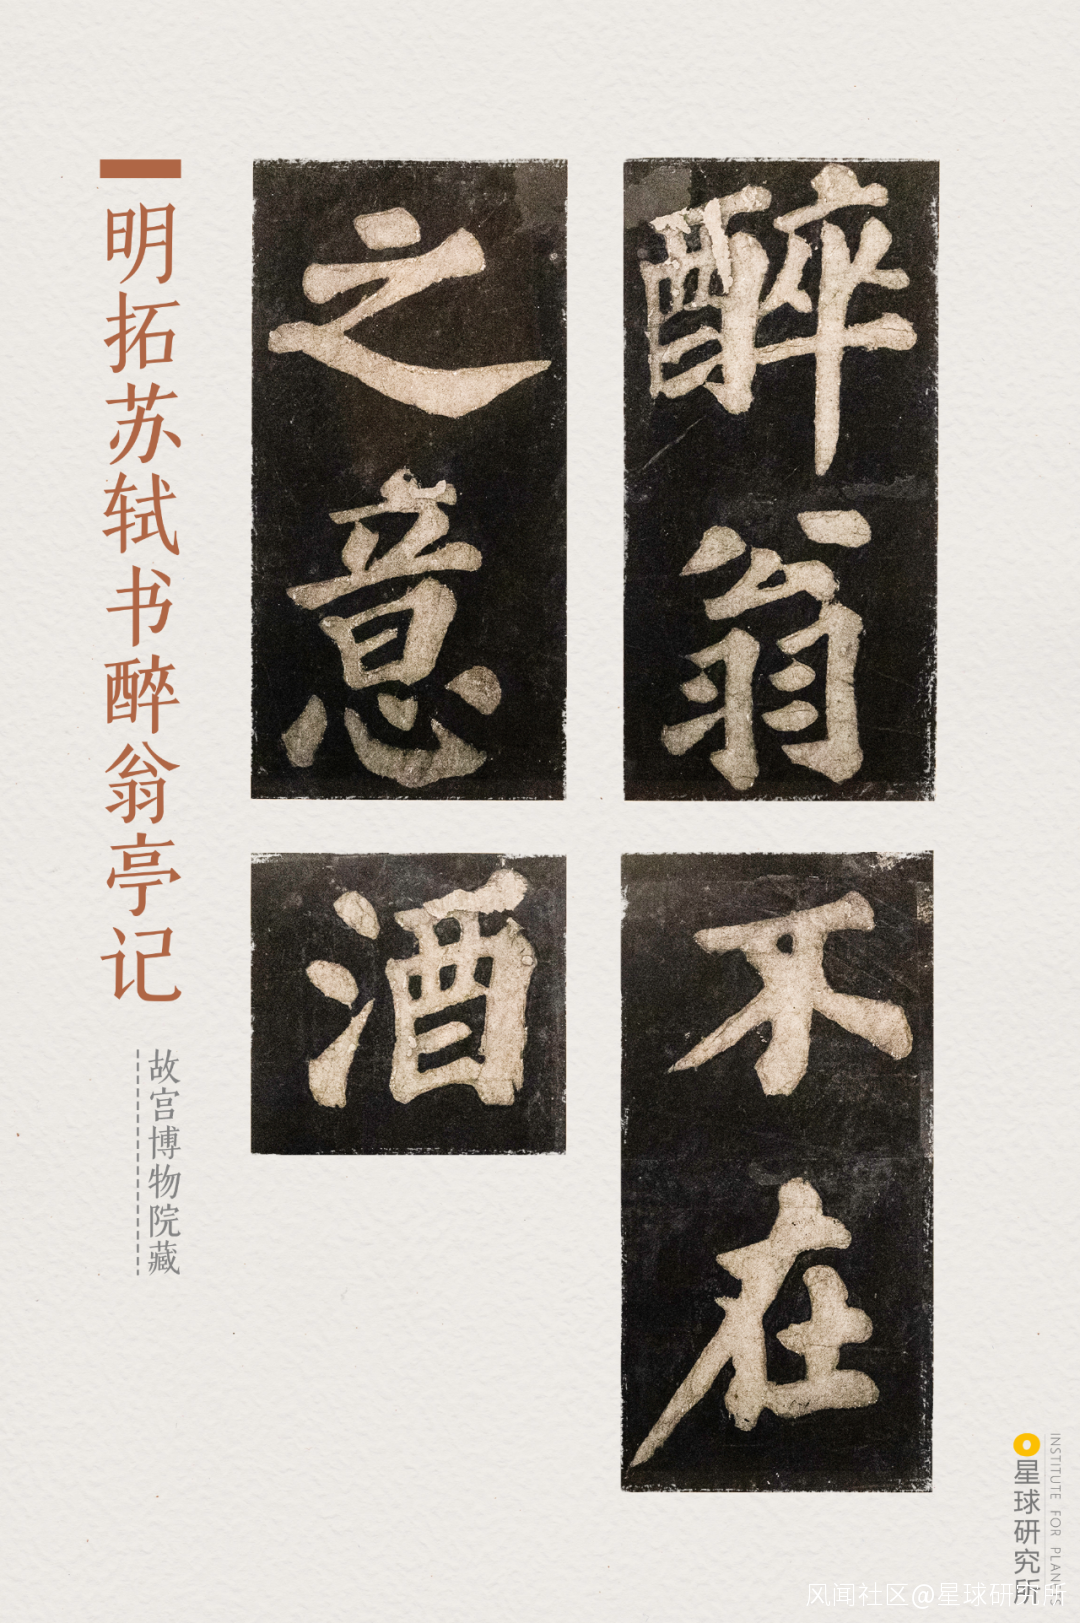 醉翁
之意
不在
酒
明拓苏轼书醉翁亭记
故宫博物院藏
星球研究所
INSTITUTE FOR PLANETS
风闻社区@星球研究所